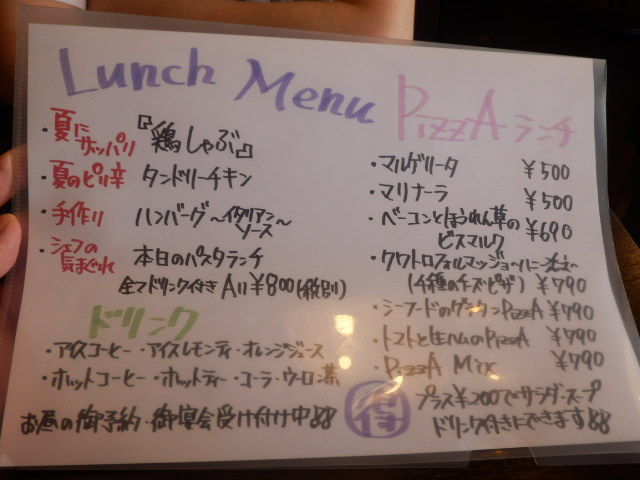 Lunch Menu
・夏にサッパリ 『鶏しゃぶ』
・夏のピリ辛 タンドリーチキン
・手作り ハンバーグ〜イタリアンソース〜
・シェフの気まぐれ 本日のパスタランチ
全てドリンク付き All ¥800(税別)
ドリンク
・アイスコーヒー・アイスレモンティ・オレンジジュース
・ホットコーヒー・ホットティー・コーラ・ウーロン茶
お昼の御予約・御宴会受け付け中
PizzA ランチ
・マルゲリータ ¥500
・マリナーラ ¥500
・ベーコンとほうれん草の
ビスマルク ¥690
・クワトロフォルマッジョ〜
(4種のチーズピザ) ¥790
・シーフードのグラタンPizzA ¥790
・トマトと生ハムのPizzA ¥790
・PizzA Mix ¥790
プラス¥200でサラダ・スープ
ドリンク付きにできます